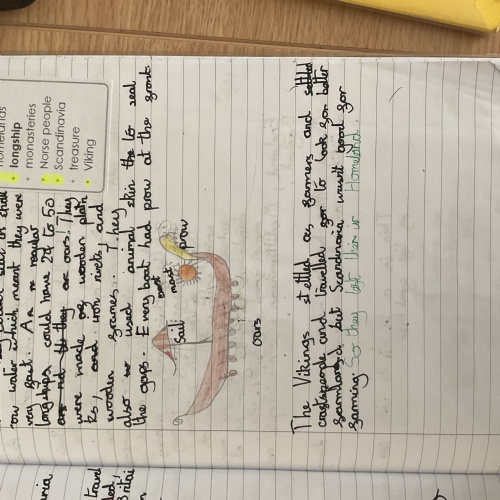 homelands
longship
monasteries
Norse people
Scandinavia
treasure
Viking
row water which meant they were
very fast. A regular
longships could have 24 to 50
oars. They
were made of wooden plan
ks, and iron rivets and
wooden frames. They
also used animal skin to seal
the gaps. Every boat had prow at the front.
Sail
mast
prow
oars
The Vikings settled as farmers and
coastspeople and travelled for to look for better
farmland but Scandinavia wasn't good for
farming so they left their homeland.
travel